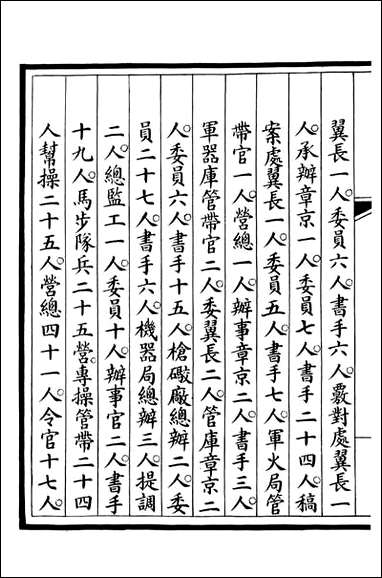 翼長一人委員六人書手六人覈對處翼長一
人承辦章京一人委員七人書手二十四人稿
案處翼長一人委員五人書手七人軍火局管
帶官一人營總一人辦事章京二人書手三人
軍器庫管帶官二人委翼長二人管庫章京二
人委員六人書手十五人槍礮廠總辦二人委
員二十七人書手六人機器局總辦三人提調
二人總監工一人委員十人辦事官二人書手
十九人馬步隊兵二十五營專操管帶二十四
人幫操二十五人營總四十一人令官十七人